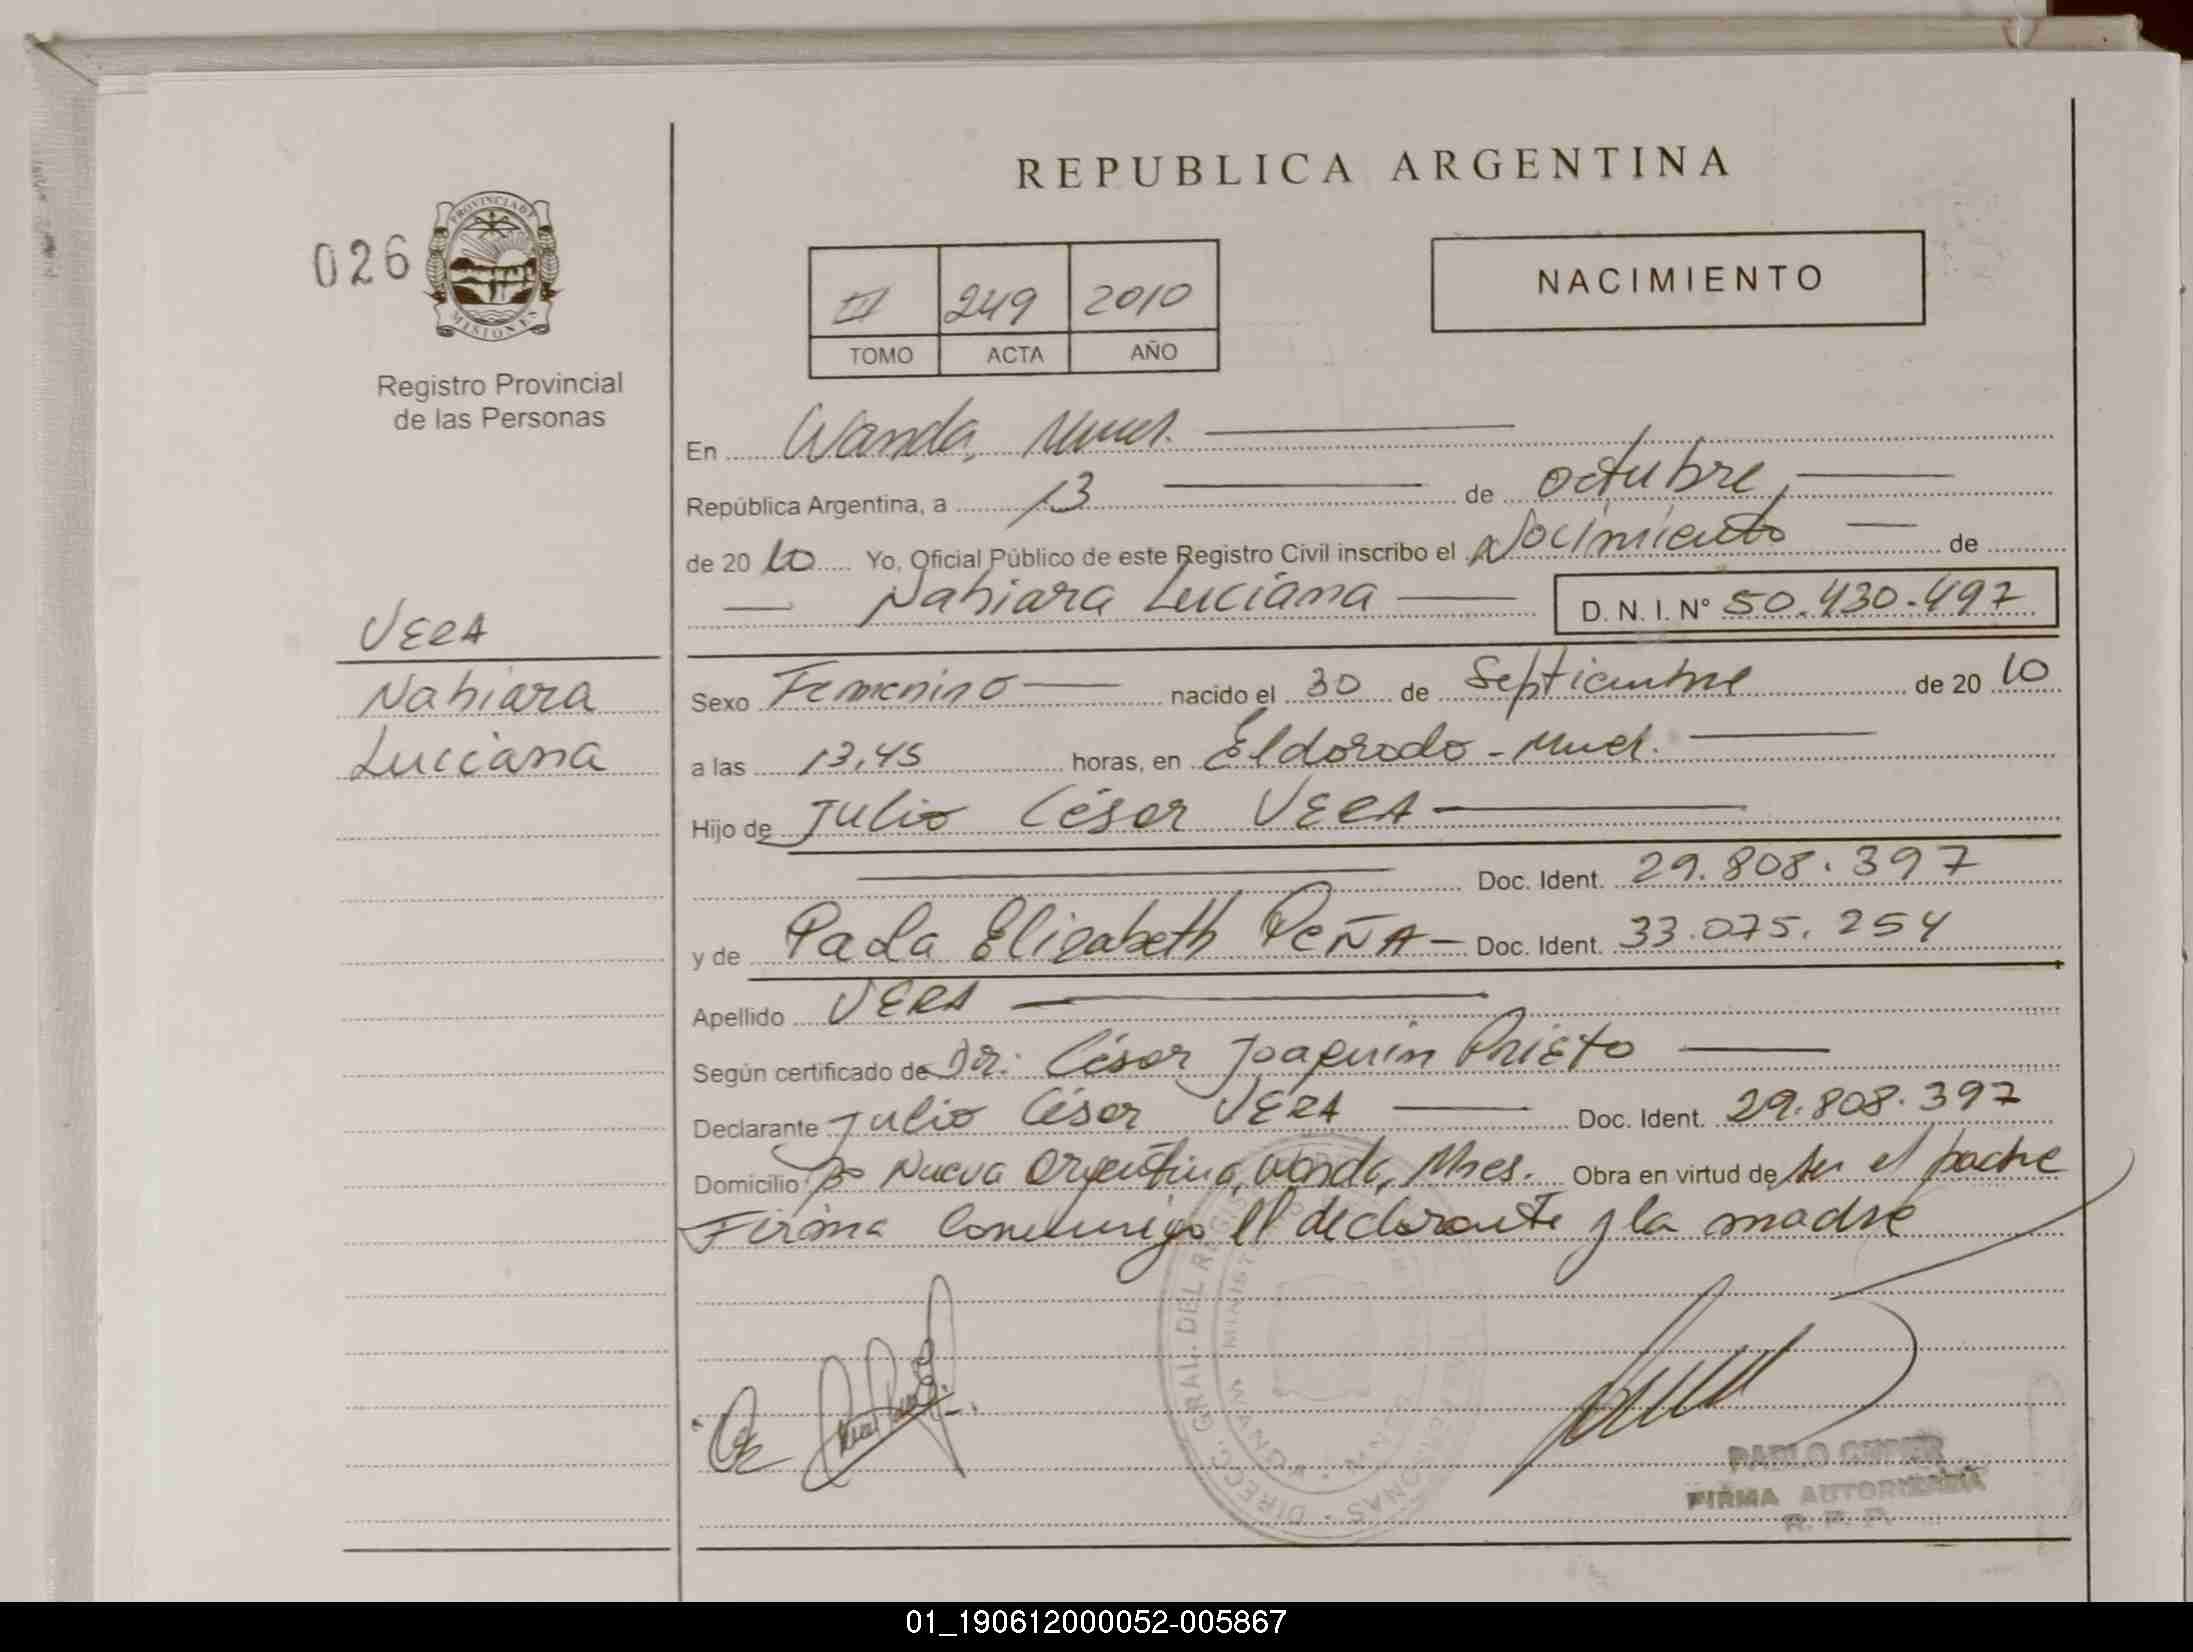 REPUBLICA ARGENTINA
026
PROVINCIA DE
MISIONES
Registro Provincial
de las Personas
II 249 2010
TOMO ACTA AÑO
NACIMIENTO
En Wanda, Mnes.
República Argentina, a 13 de octubre,
de 2010 Yo, Oficial Público de este Registro Civil inscribo el Nacimiento de
Nahiara Luciana D. N. I. Nº 50.430.497
VERA
Nahiara
Luciana
Sexo Femenino nacido el 30 de Septiembre de 2010
a las 13,45 horas, en Eldorado - Mnes.
Hijo de Julio César VERA
Doc. Ident. 29.808.397
y de Paola Elizabeth PEÑA - Doc. Ident. 33.075.254
Apellido VERA
Según certificado de Dr. César Joaquin Prieto
Declarante Julio César VERA Doc. Ident. 29.808.397
Domicilio Bº Nueva Argentina, Wanda, Mnes. Obra en virtud de ser el padre
Firma conmigo el declarante y la madre
FIRMA AUTORIZADA
R. P. P.
01_190612000052-005867